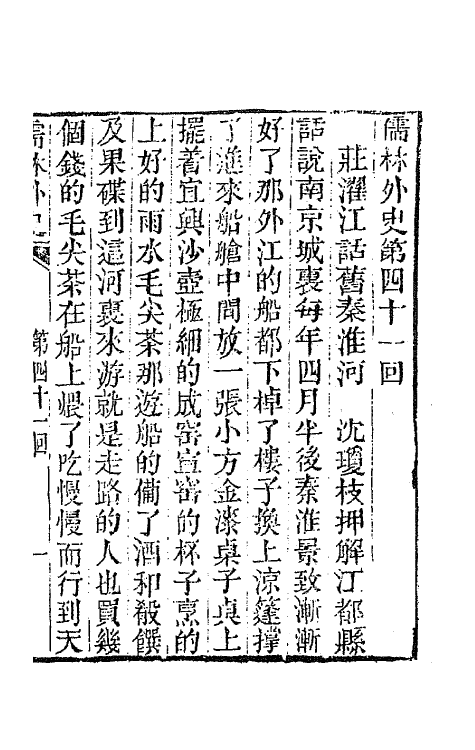 儒林外史第四十一回
莊濯江話舊秦淮河　沈瓊枝押解江都縣
話說南京城裏每年四月半後秦淮景致漸漸
好了那外江的船都下掉了樓子換上涼篷撐
了進來船艙中間放一張小方金漆桌子桌上
擺着宜興沙壺極細的成窑宣窑的杯子烹的
上好的雨水毛尖茶那遊船的備了酒和殽饌
及果碟到這河裏來游就是走路的人也買幾
個錢的毛尖茶在船上煨了吃慢慢而行到天
儒林外史　第四十一回　一